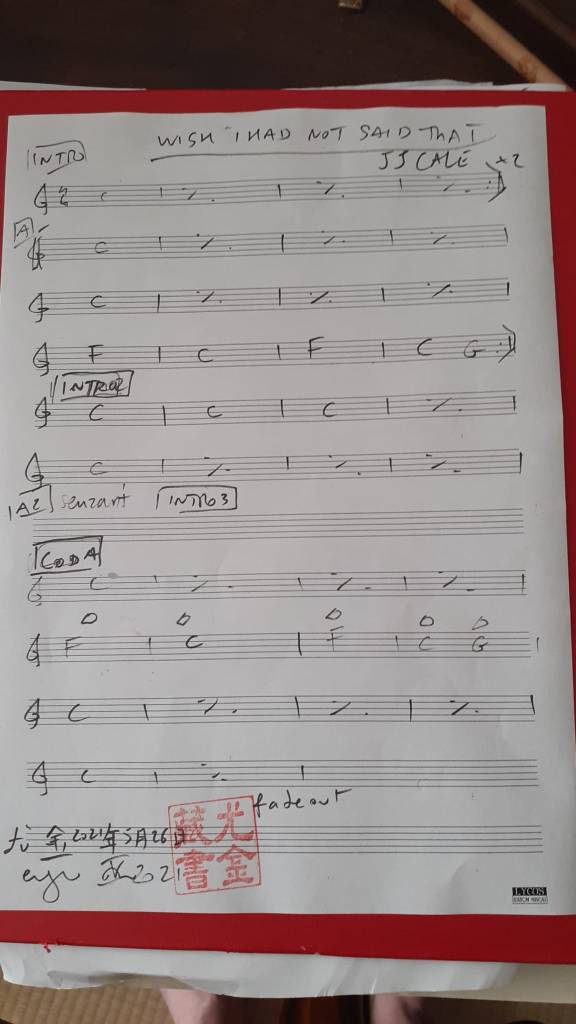 WISH I HAD NOT SAID THAT
INTRO
JJ CALE x2
C | ٪ | ٪ | ٪ :|
A
C | ٪ | ٪ | ٪ |
C | ٪ | ٪ | ٪ |
F | C | F | C G :|
INTRO2
C | C | C | ٪ |
C | ٪ | ٪ | ٪ |
A2 senza rit INTRO 3
CODA
C | ٪ | ٪ | ٪ |
F | C | F | C G |
C | ٪ | ٪ | ٪ |
C | ٪ |
fadeout
尤金, 2021年5月26日
2021
尤金
藏書
LYCOS